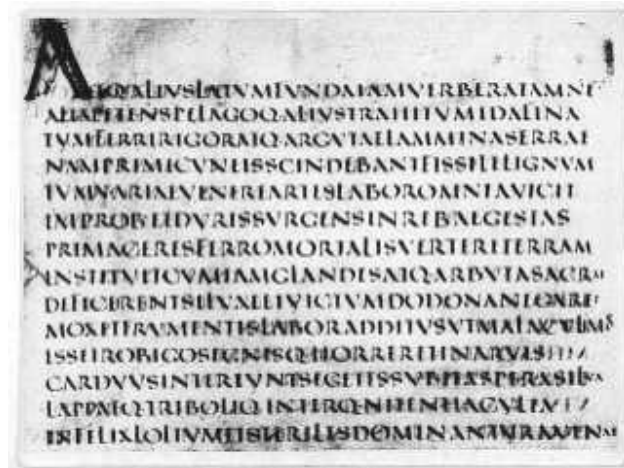 ATQ·ALIVSLATVMFVNDAIAMVERBERATAMNE
ALTAPETENSPELAGOQ·ALIVSTRAHITVMIDALINA
TVMFERRIRIGORATQ·ARGVTAELAMMINASERRAE
NAMPRIMICVNEISSCINDEBANTFISSILELIGNVM
TVMVARIAEVENEREARTESLABOROMNIAVICIT
IMPROBVSETDVRISSVRGENSINREBVSEGESTAS
PRIMACERESFERROMORTALISVERTERETERRAM
INSTITVITCVMIAMGLANDESATQ·ARBVTASACRAE
DEFICERENTSILVAEETVICTVMDODONANEGARET
MOXETFRVMENTISLABORADDITVSVTMALACVLMOS
ESSETROBIGOSEGNISQ·HORRERETINARVIS
CARDVVSINTEREVNTSEGETESSVBITASPERASILVA
LAPPAEQ·TRIBOLIQ·INTERQ·NITENTIACVLTA
INFELIXLOLIVMETSTERILISDOMINANTVRAVENAE